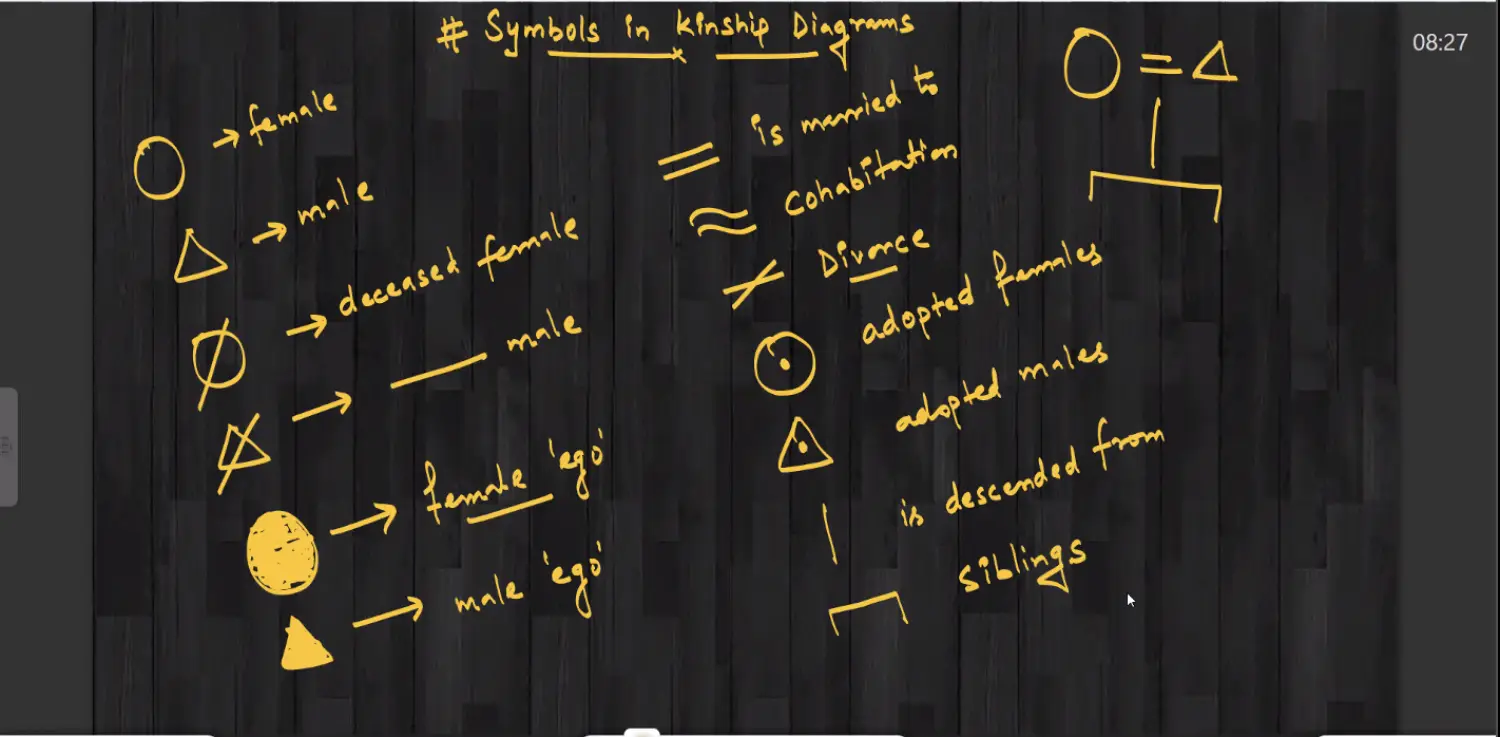 # Symbols in Kinship Diagrams
08:27
→ female
→ male
→ deceased female
→ —— male
→ female 'ego'
→ male 'ego'
= is married to
≈ Cohabitation
≠ Divorce
adopted females
adopted males
is descended from
siblings